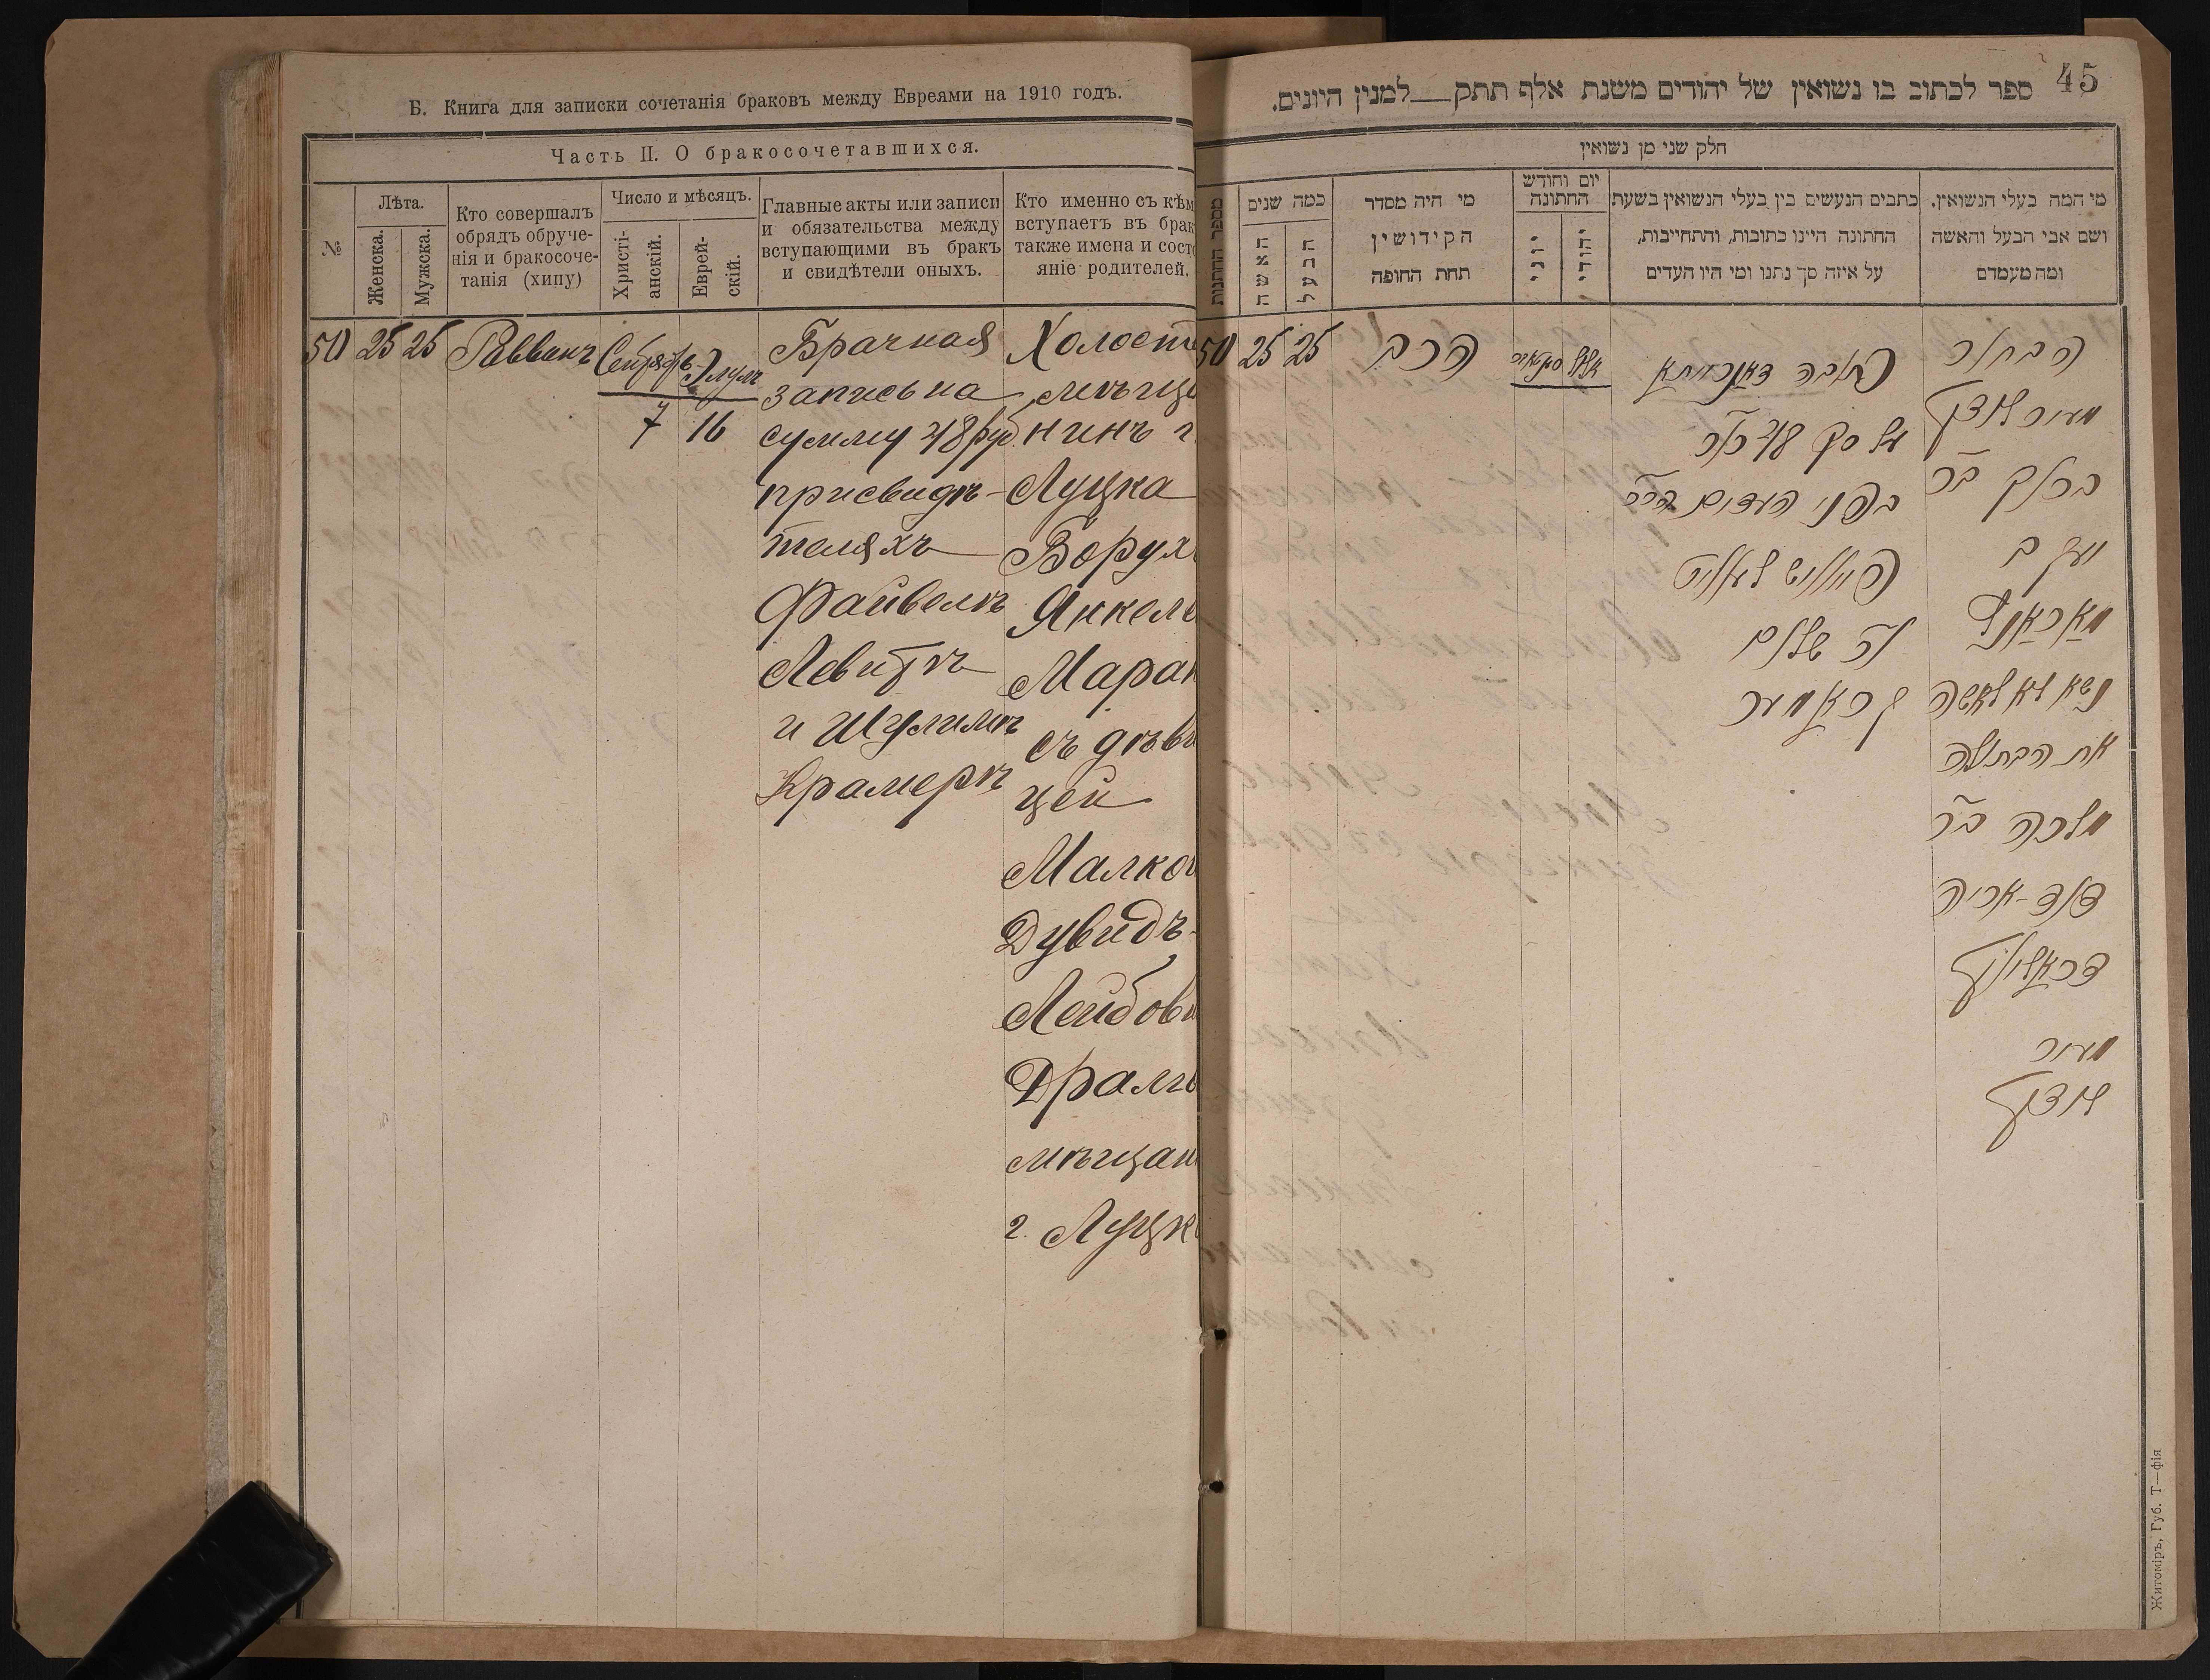 Б. Книга для записки сочетанія браковъ между Евреями на 1910 годъ.
Часть II. О бракосочетавшихся.
№
Лѣта.
Женска.
Мужска.
Кто совершалъ
обрядъ обруче-
нія и бракосоче-
танія (хипу)
Число и мѣсяцъ.
Христі-
анскій.
Еврей-
скій.
Главные акты или записи
и обязательства между
вступающими въ бракъ
и свидѣтели оныхъ.
Кто именно съ кѣм
вступаетъ въ брак
также имена и сост
яніе родителей.
50
25
25
Раввинъ
Сентябрь
7
Элулъ
16
Брачная
запись на
сумму 48 руб.
при свидѣ-
теляхъ
Файвелѣ
Левитѣ
и Шулимѣ
Крамерѣ
Холост
мѣща
нинъ г.
Луцка
Борух
Янкель
Маран
съ дѣви
цей
Малкой
Дувидъ-
Лейбови
Драли
мѣщан
г. Луцк
45
ספר לכתוב בו נשואין של יהודים משנת אלף תתק__למנין היונים.
חלק שני מן נשואין
מספר החתנות
כמה שנים
האשה
הבעל
מי היה מסדר
הקידושין
תחת החופה
יום וחודש
החתונה
יוני
יהודי
כתבים הנעשים בין בעלי הנשואין בשעת
החתונה היינו כתובות, והתחייבות,
על איזה סך נתנו ומי היו העדים
מי המה בעלי הנשואין,
ושם אבי הבעל והאשה
ומה מעמדם
50
25
25
הרב
אלול
כתובה דאורייתא
על סך 48 רכ
בפני העדים ה"ה
פייוויש לעוויט
וה שלום
קראמער
הבחור
מעיר לוצק
ברוך בר
יעקב
מאראנץ
נשא לו לאשה
את הבתולה
מלכה בר
דוד-אריה
מעיר
לוצק
Житоміръ, Губ. Т—фія